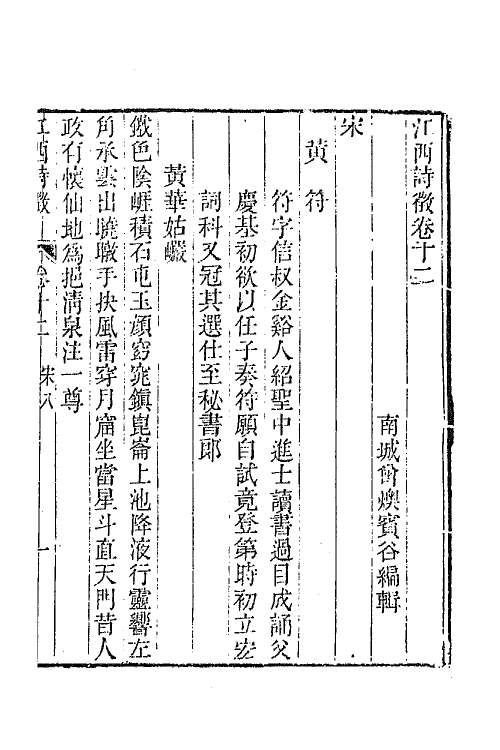 江西詩徵卷十二
南城曾燠賓谷編輯
宋
黃符
符字信叔金谿人紹聖中進士讀書過目成誦父
慶基初欲以任子奏符願自試竟登第時初立宏
詞科又冠其選仕至秘書郎
黃華姑巖
儼色陰崕積石屯玉顔窈窕鎮崑崙上池降液行靈響左
角承雲出曉暾手抉風雷穿月窟坐當星斗直天門昔人
政有懷仙地爲挹淸泉注一尊
江西詩徵 卷十二 宋八 一